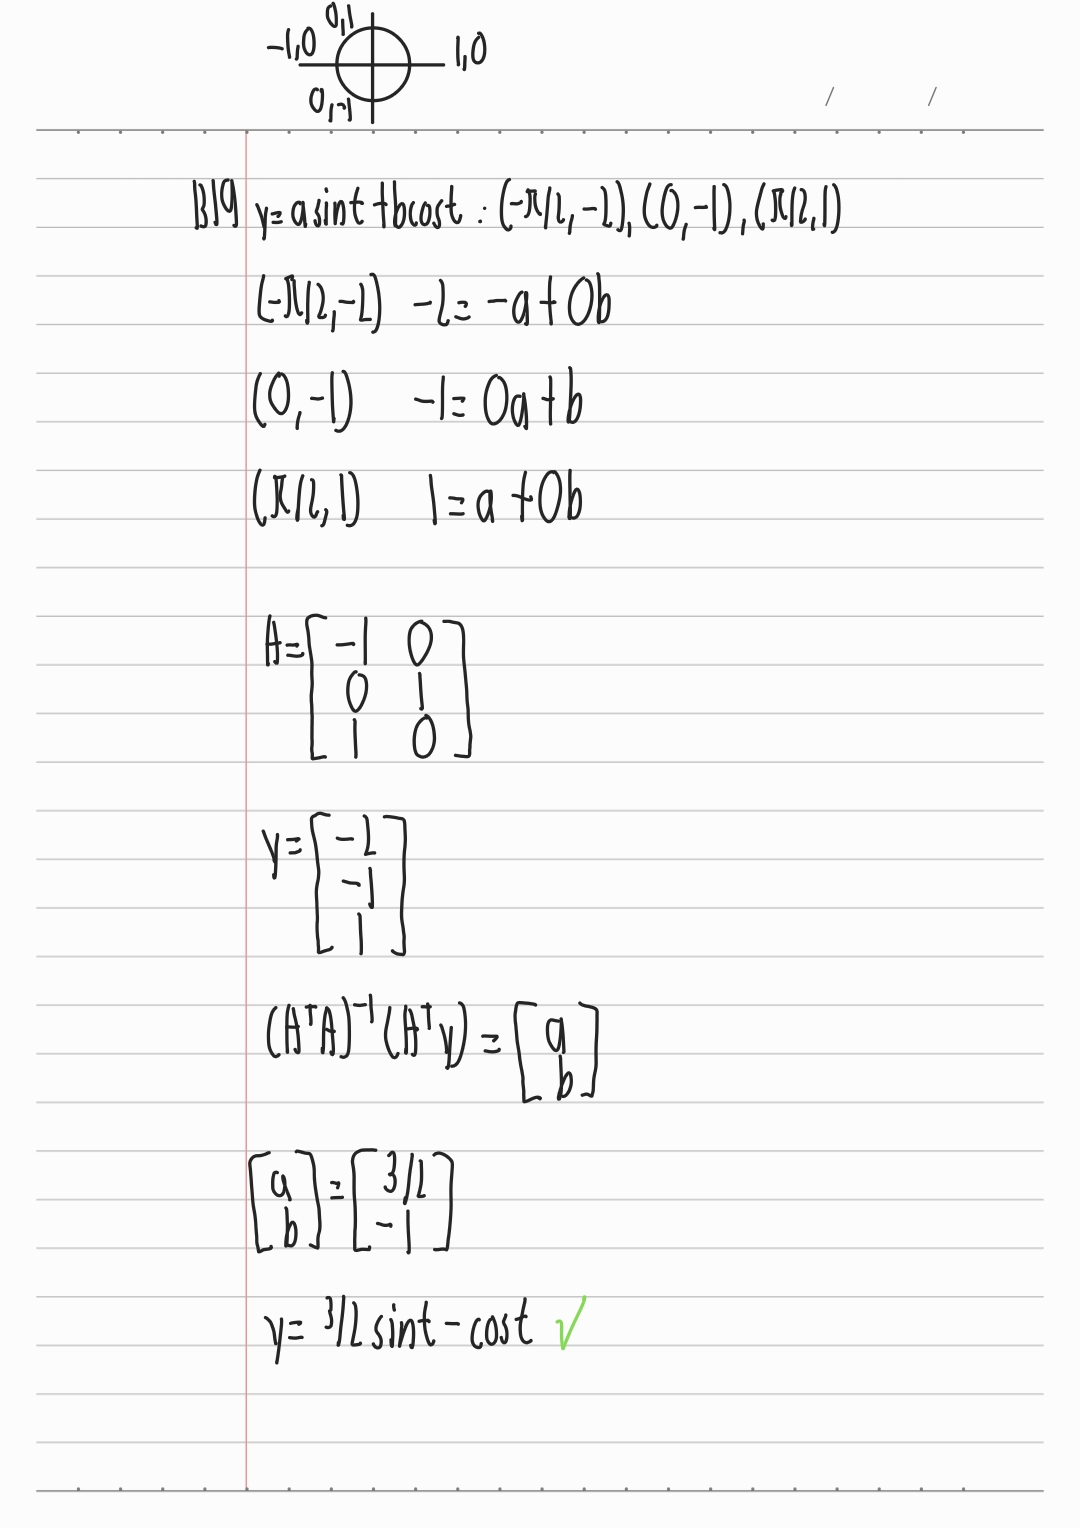 0,1
-1,0 1,0
0,-1
/ /
y= asint +bcost : (-π/2, -2), (0, -1), (π/2, 1)
(-π/2, -2) -2= -a+0b
(0, -1) -1= 0a+b
(π/2, 1) 1=a+0b
A= [ -1 0
0 1
1 0 ]
y= [ -2
-1
1 ]
(AᵀA)⁻¹(Aᵀy) = [ a
b ]
[ a ] = [ 3/2 ]
[ b ] [ -1 ]
y= 3/2 sint - cost ✓